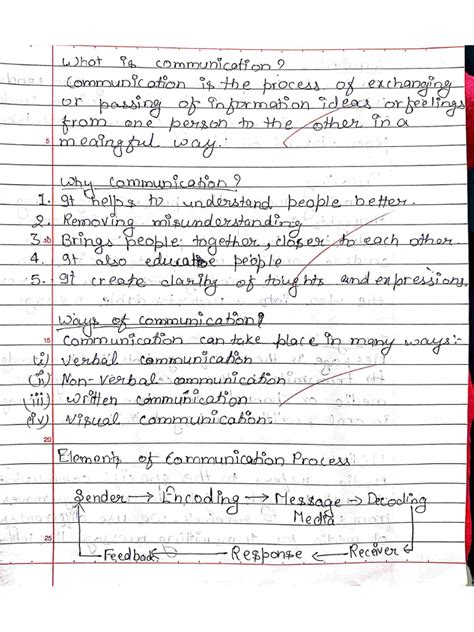 What is communication?
Communication is the process of exchanging
or passing of information ideas or feelings
from one person to the other in a
5 meaningful way.
Why communication?
1. It helps to understand people better.
2. Removing misunderstanding
3. Brings people together, closer to each other.
4. It also educate people
5. It create clarity of toughts and expressions.
Ways of communication?
15 Communication can take place in many ways:-
(i) Verbal communication
(ii) Non-verbal communication
(iii) Written communication
(iv) Visual communication.
20
Elements of Communication Process
Sender → Encoding → Message → Decoding
Media
25 Feedback ← Response ← Reciver